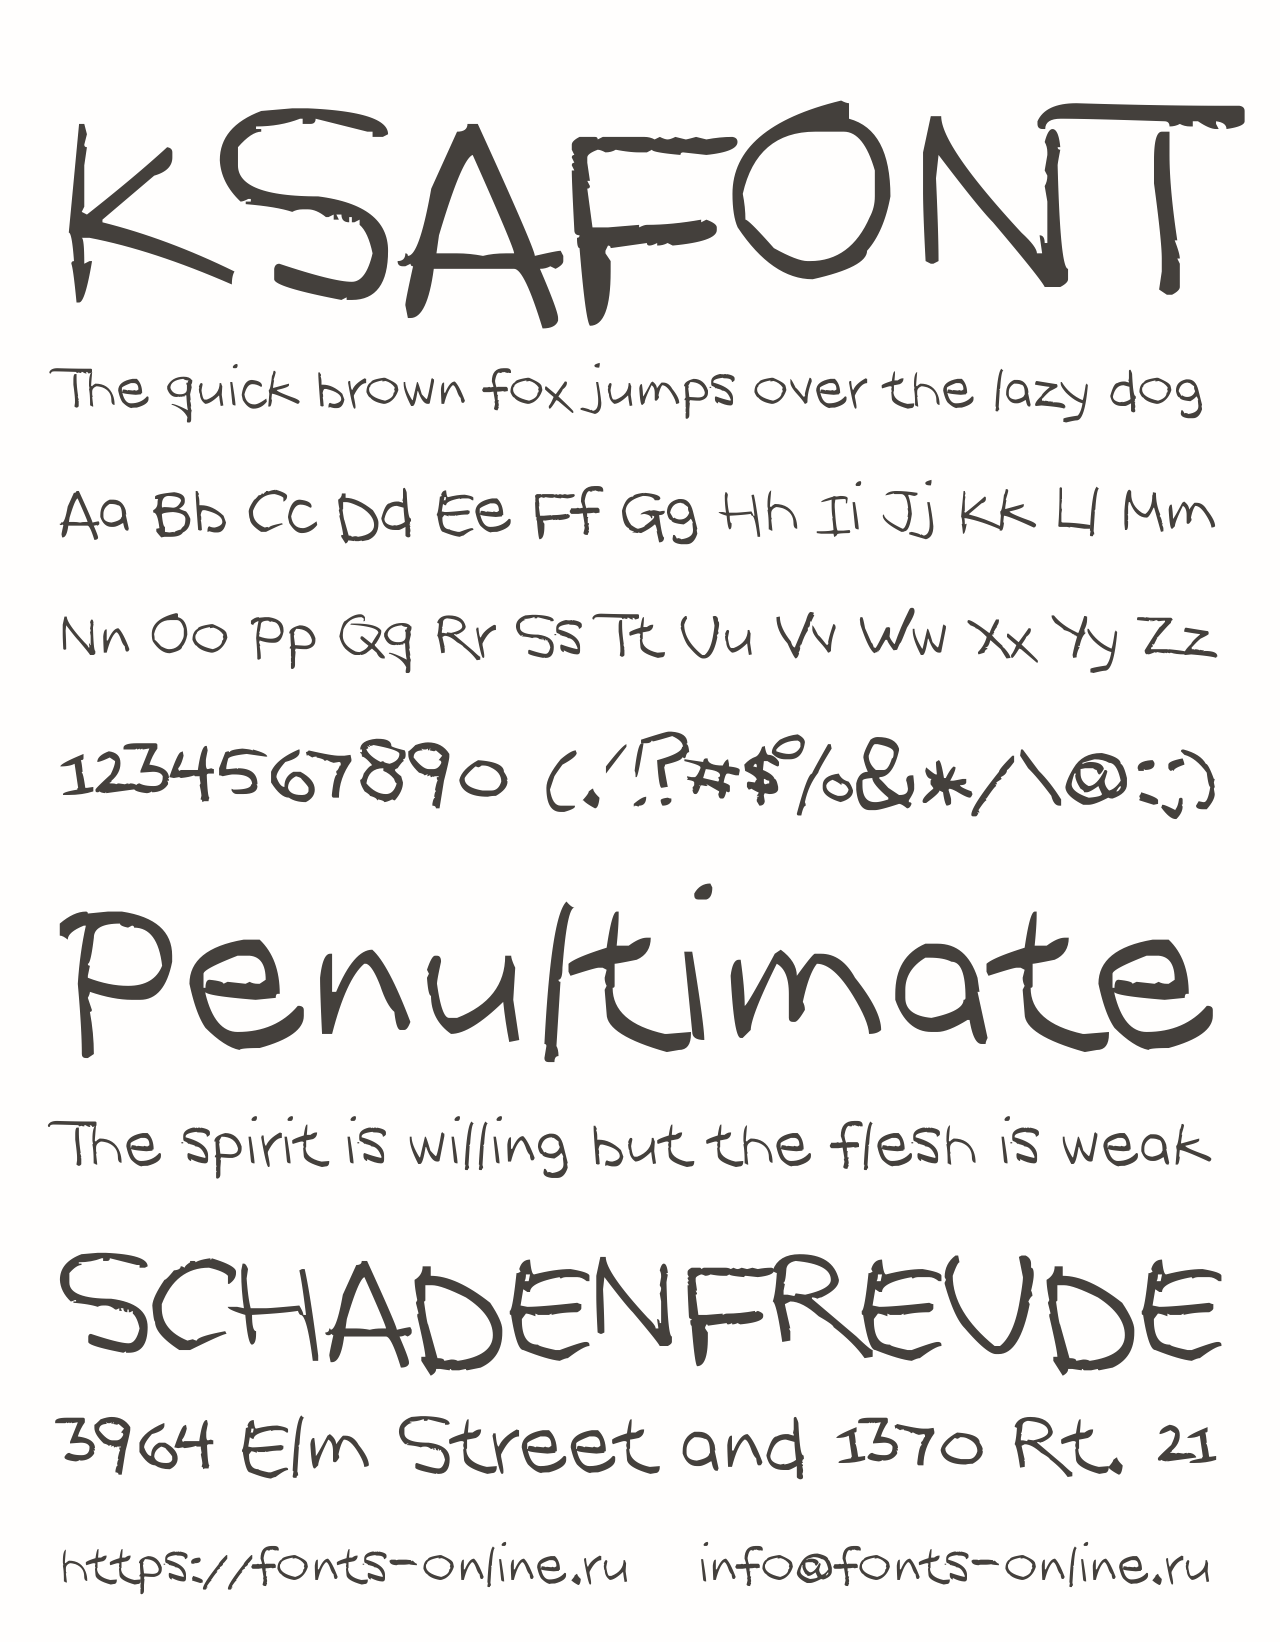 KSAFONT
The quick brown fox jumps over the lazy dog
Aa Bb Cc Dd Ee Ff Gg Hh Ii Jj Kk Ll Mm
Nn Oo Pp Qq Rr Ss Tt Uu Vv Ww Xx Yy Zz
1234567890 (.'!?#$%&*/\@:;)
Penultimate
The spirit is willing but the flesh is weak
SCHADENFREUDE
3964 Elm Street and 1370 Rt. 21
https://fonts-online.ru info@fonts-online.ru